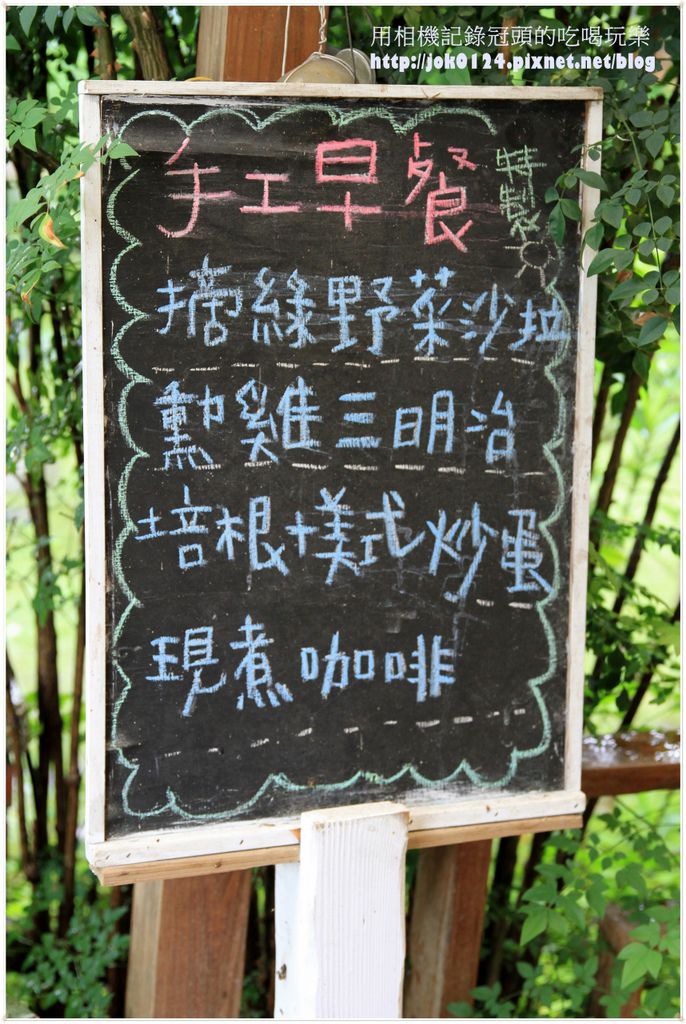 用相機記錄冠頭的吃喝玩樂
http://jok0124.pixnet.net/blog
手工早餐 特製
摘綠野菜沙拉
勳雞三明治
培根+美式炒蛋
現煮咖啡